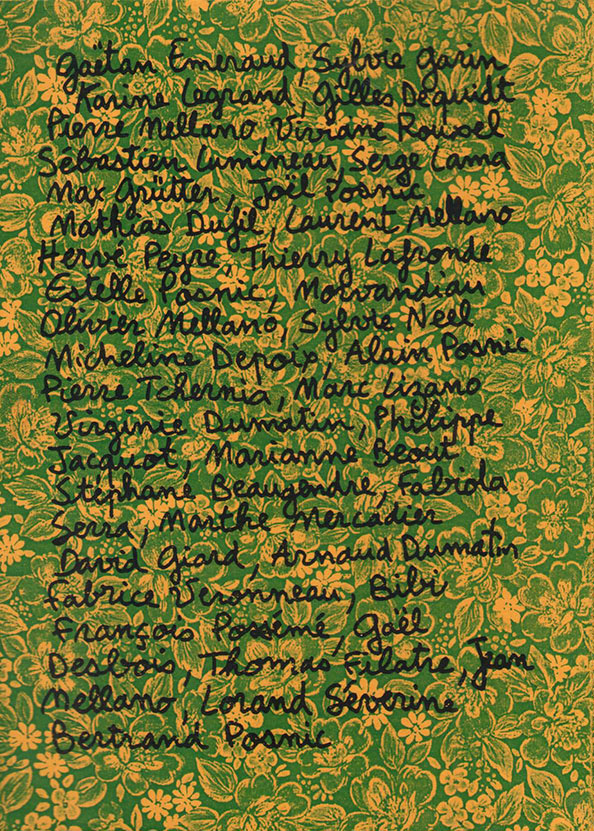 Gaëtan Emeraud, Sylvie Garin
Karine Legrand, Gilles Dequidt
Pierre Mellano, Viviane Roussel
Sébastien Lumineau, Serge Lama
Max Grütter, Joël Posnic
Mathias Dufil, Laurent Mellano
Hervé Peyre, Thierry Lafronde
Estelle Posnic, Morvandiau
Olivier Mellano, Sylvie Neel
Micheline Depoix, Alain Posnic
Pierre Tchernia, Marc Lizano
Virginie Dumatin, Philippe
Jacquot, Marianne Beout
Stéphane Beaugendre, Fabiola
Serra, Marthe Mercadier
David Giard, Arnaud Dumatin
Fabrice Veronneau, Bibi
François Possémé, Gaël
Desbois, Thomas Filatre, Jean
Mellano, Lorand Séverine
Bertrand Posnic